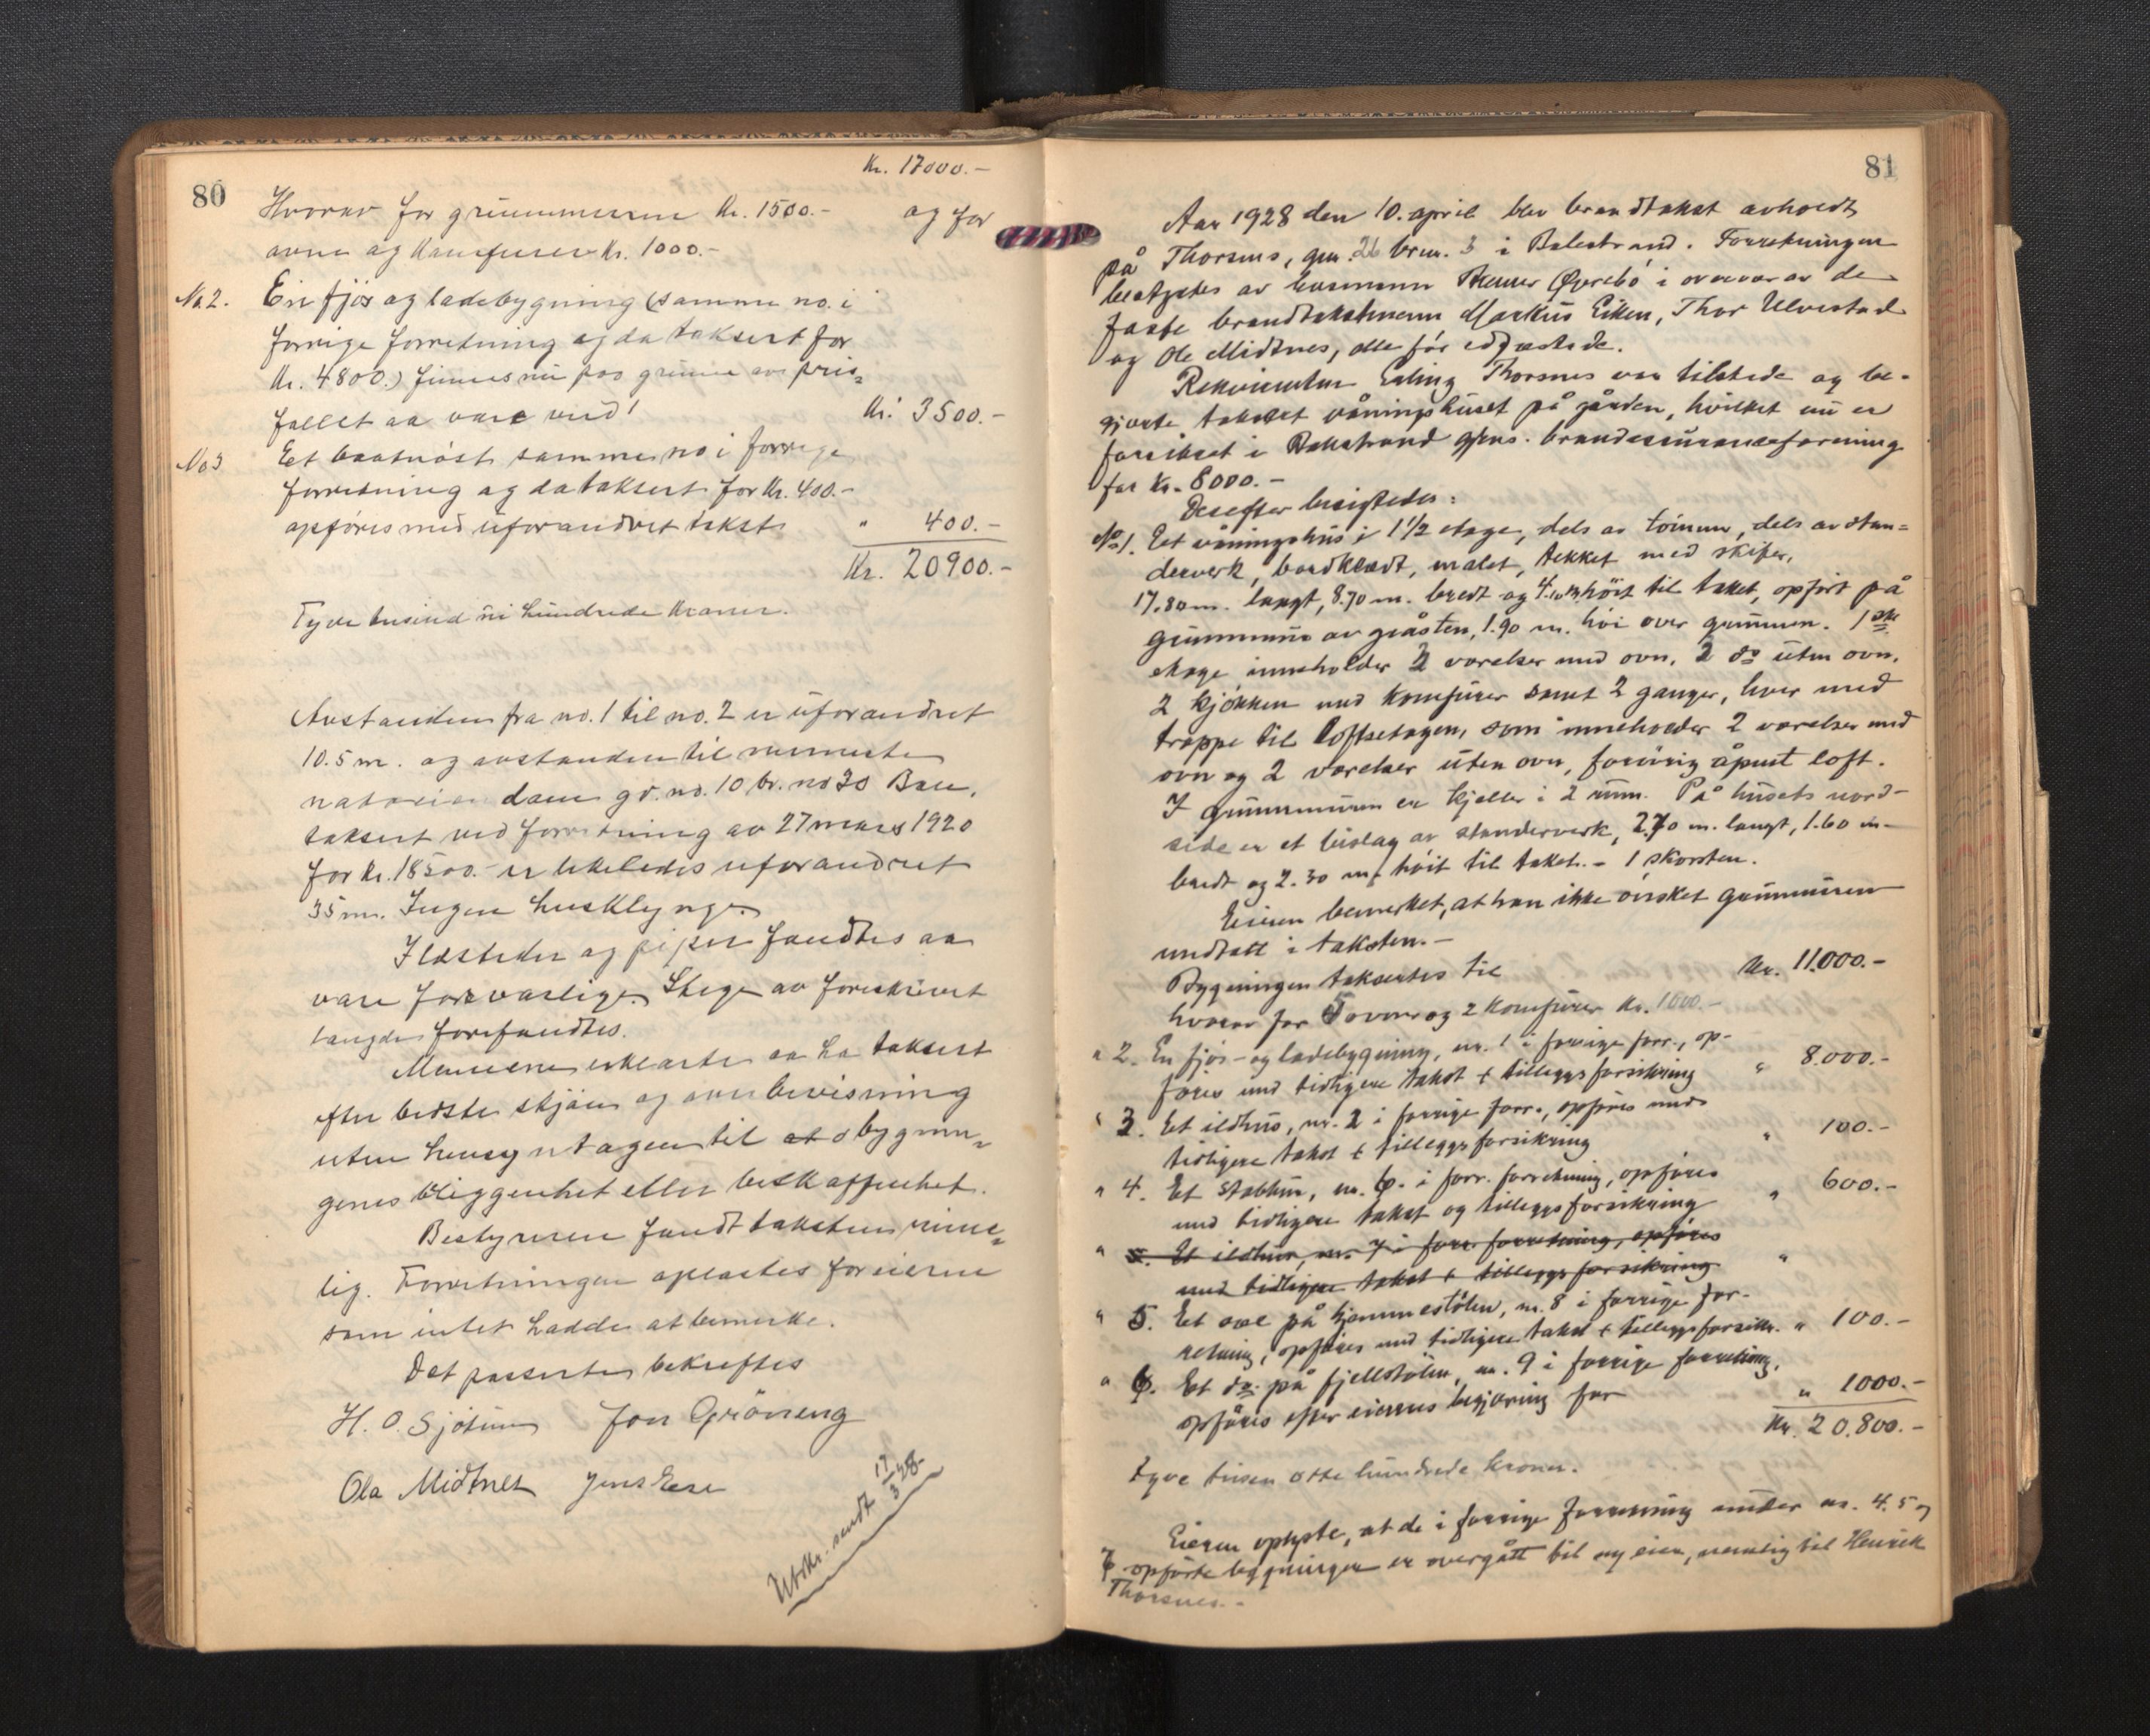 80
Kr. 17000.-
Hvorav for grunnmuren Kr. 1500.- og for
ovne og Komfurer Kr. 1000.-
No. 2. Ein fjøs og ladebygning (samme no. i
forrige forretning og da taksert for
Kr. 4800.) finnes nu paa grunn av pris=
fallet aa være verd! Kr. 3500.-
No 3 Et baatnøst samme no i forrige
forretning og da taksert for Kr. 400.-
opføres med uforandret takst " 400.-
Kr. 20900.-
Tyve tusind ni hundrede Kroner.
Avstanden fra no. 1 til no. 2 er uforandret
10.5 m. og avstanden til nermeste
gr. no. 10 br. no 30 Bale,
taksert ved forretning av 27 mars 1920
for Kr. 18500.- er likeledes uforandret
35 m. Ingen husklynge.
Ildsteder og piper fandtes aa
være forsvarlige. Stige av foreskrevet
længde forefandtes.
Mennene erklærte aa ha taksert
efter bedste skjøn og overbevisning
uten hensyntagen til bygnin=
genes beliggenhet eller beskaffenhet.
Bestyreren fandt taksten rime=
lig. Forretningen oplæstes for eieren
som intet hadde at bemerke.
Det passerte bekreftes
H. O. Sjøtun Jon Grøneng
Ola Midtnes Jens Ese
Utskr. sendt 17/3 28.
81
Aar 1928 den 10. april blev brandtakst avholdt
på Thorsnes, gnr. 26 brnr. 3 i Balestrand. Forretningen
bestyrtes av lensmann Øvrebø i overvær av de
faste brandtakstmenn Markus Eiken, Thor Ulvestad
og Ole Midtnes, alle før edfæstede.
Rekvirenten Erling Thorsnes var tilstede og be-
gjærte taksert våningshuset på gården, hvilket nu er
forsikret i Balestrand gjens. brandassuranceforening
for Kr. 8000.-
Derefter besigtedes:
No 1. Et våningshus i 1 1/2 etage, dels av tømmer, dels av stan=
derverk, bordklædt, malet, tekket med skifer,
17.80 m. langt, 8.70 m. bredt og 4.10 m. høit til taket, opført på
grunnmur av gråsten, 1.90 m. høi over grunnen. 1ste
etage inneholder 2 værelser med ovn, 2 do uten ovn,
2 kjøkken med komfurer samt 2 ganger, hver med
trappe til loftsetagen, som inneholder 2 værelser med
ovn og 2 værelser uten ovn, forøvrig åpent loft.
I grunnmuren er kjeller i 2 rum. På husets nord-
side er et bislag av standerverk, 2.70 m. langt, 1.60 m
bredt og 2.30 m. høit til taket. - 1 skorsten.
Eieren bemerket, at han ikke ønsket grunnmuren
undtatt i taksten.-
Bygningen taksertes til Kr. 11.000.-
hvorav for 5 ovner og 2 komfurer Kr. 1000.-
" 2. En fjøs- og ladebygning, nr. 1 i forrige forr., op-
føres med tidligere takst + tilleggsforsikring " 8.000.-
" 3. Et ildhus, nr. 2 i forrige forr., opføres med
tidligere takst + tilleggsforsikring " 100.-
" 4. Et stabbur, nr. 6. i forr. forretning, opføres
med tidligere takst og tilleggsforsikring " 600.-
" 5. Et ildhus, nr. 7 i forr. forretning, opføres
med tidligere takst + tilleggsforsikring "
" 5. Et sel på hjemmestølen, nr. 8 i forrige for-
retning, opføres med tidligere takst + tilleggsforsikr. " 100.-
" 6. Et do. på fjellstølen, nr. 9 i forrige forretning,
opføres efter eierens begjæring for " 1000.-
Kr. 20.800.-
Tyve tusen otte hundrede kroner.
Eieren oplyste, at de i forrige forretning under nr. 4. 5 og
7 opførte bygninger er overgått til ny eier, nemlig til Henrik
Thorsnes.-